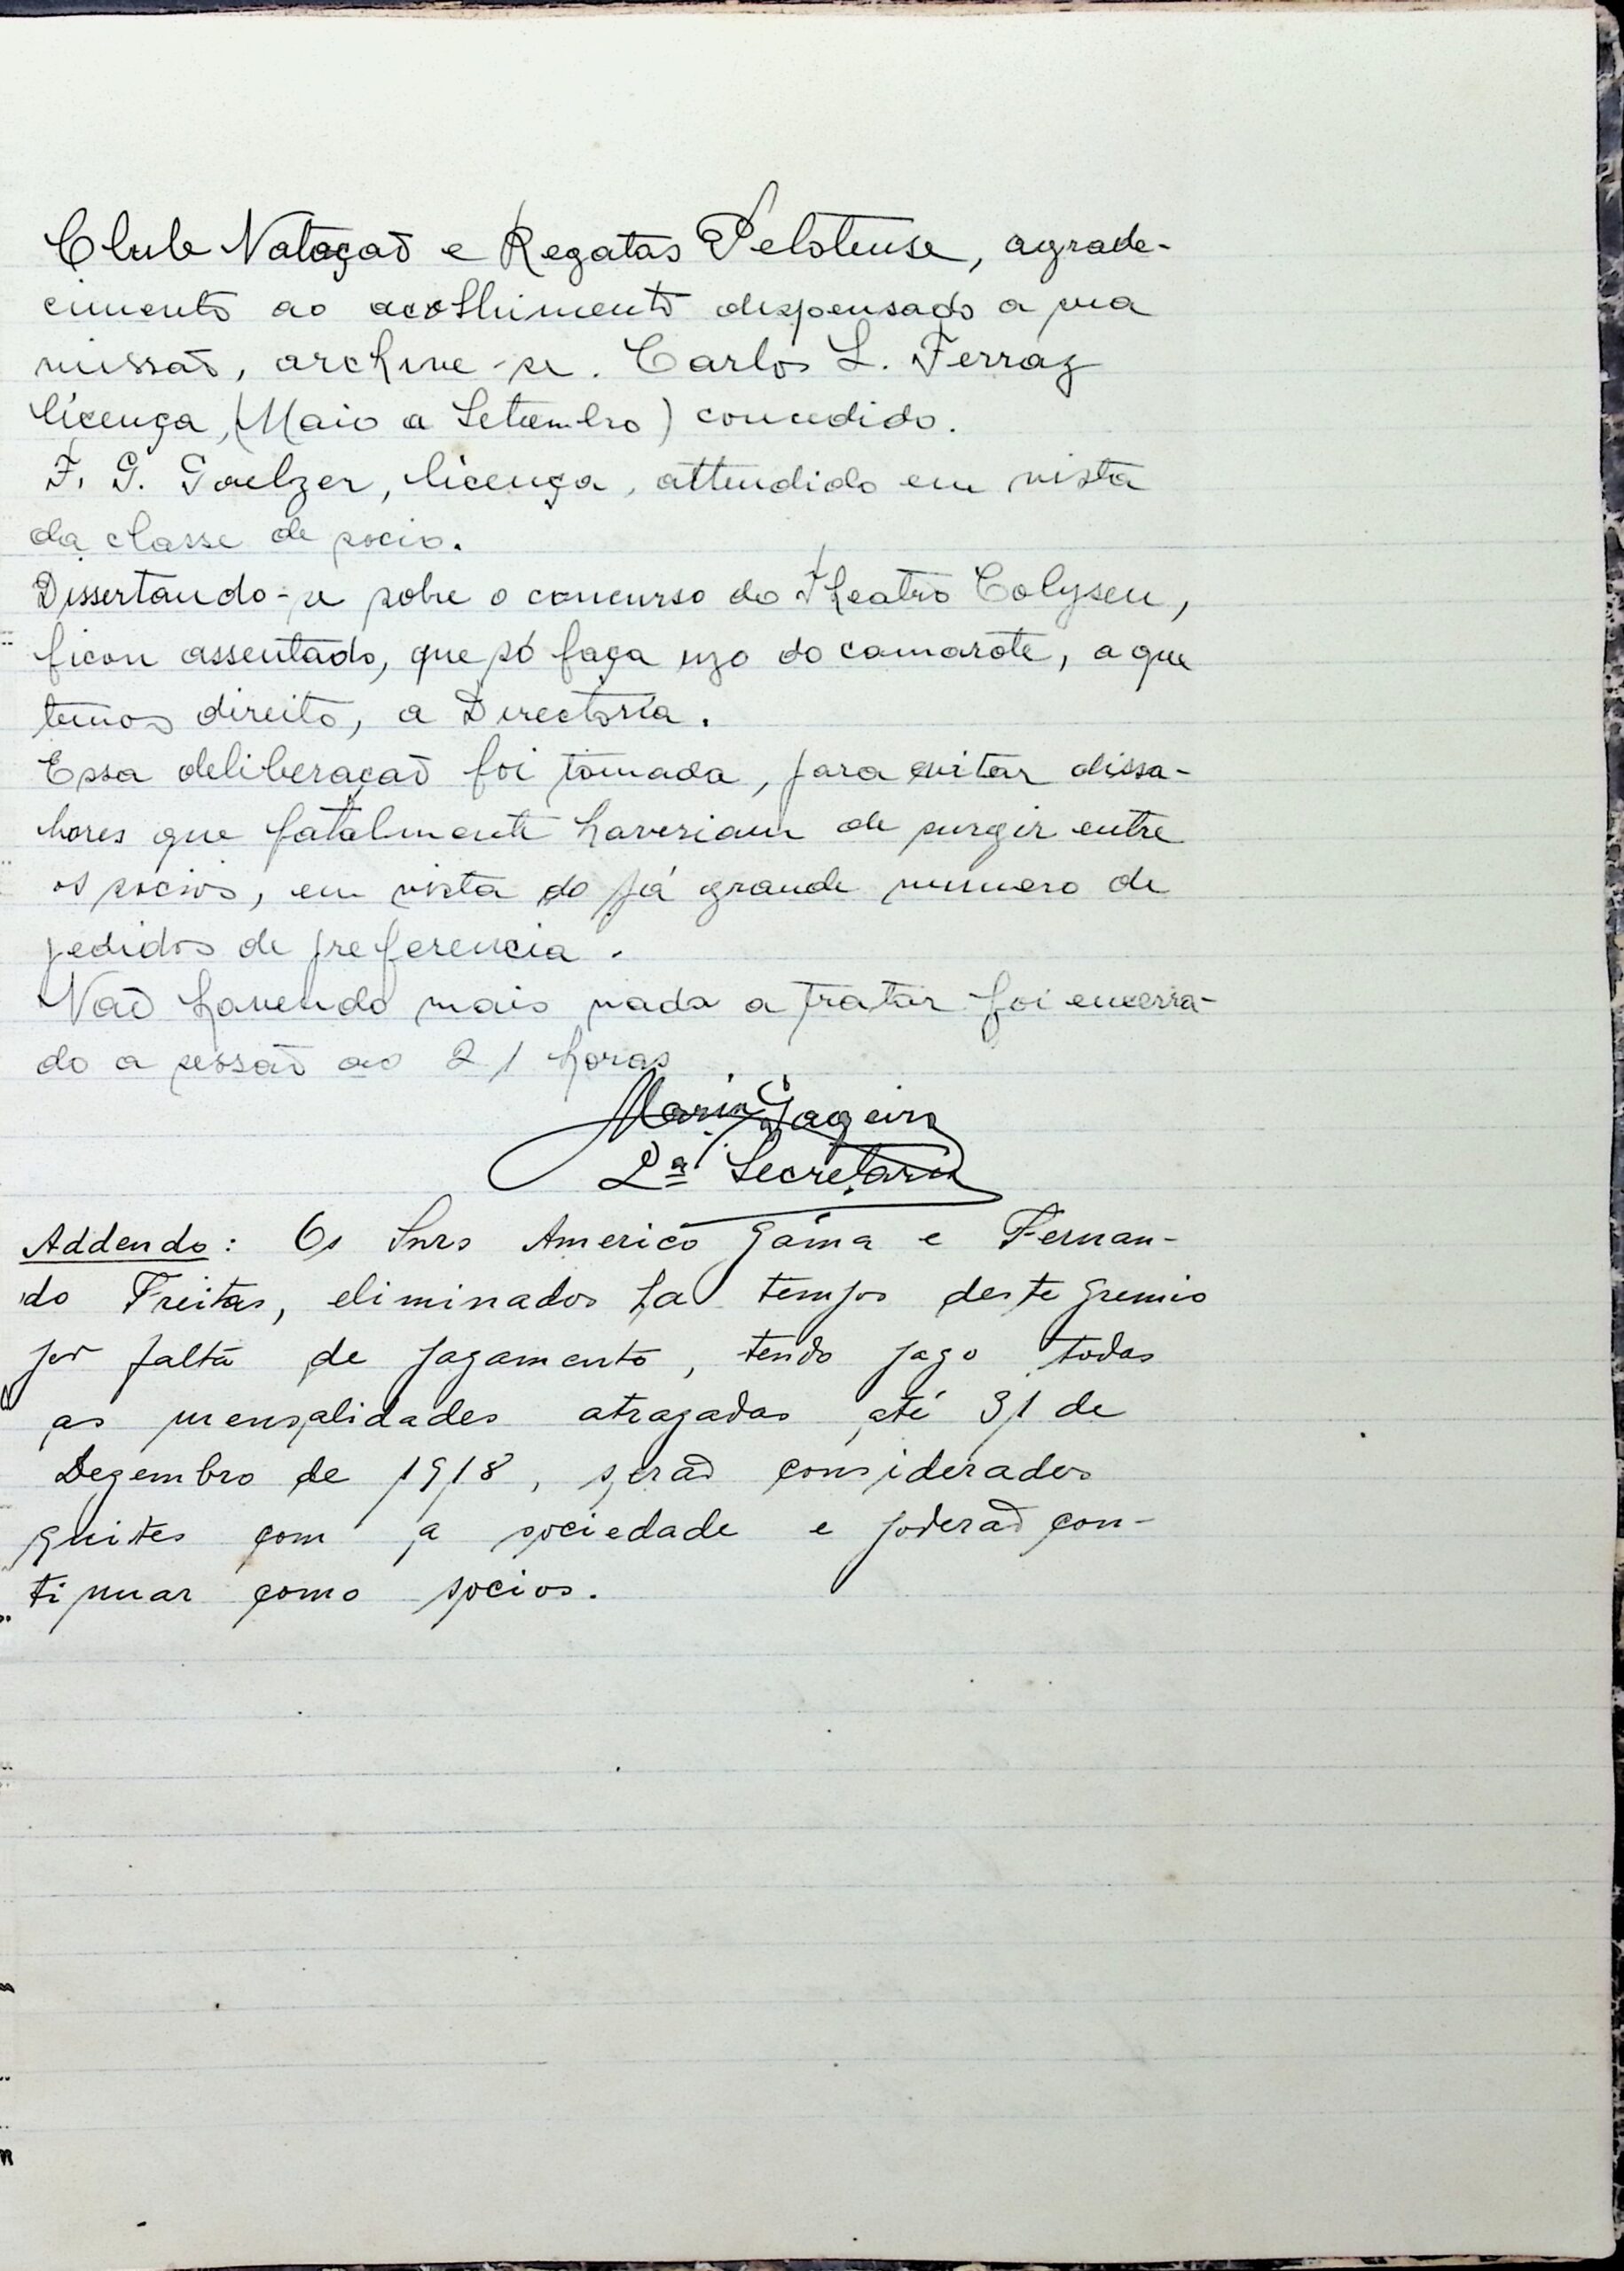 Club Natação e Regatas Pelotense, agrade-
cimento ao acolhimento dispensado a sua
missão, archive-se. Carlos L. Ferraz
licença, (Maio a Setembro) concedido.
F. G. Gaelzer, licença, attendido em vista
da classe de socio.
Dissertando-se sobre o concurso do Theatro Colyseu,
ficou assentado, que só faça uzo do camarote, a que
temos direito, a Directoria.
Essa deliberação foi tomada, para evitar dissa-
bores que fatalmente haveriam de surgir entre
os socios, em vista do já grande numero de
pedidos de preferencia.
Não havendo mais nada a tratar foi encerra-
do a sessão as 21 horas
Mario Gageiro
2º Secretario
Addendo: Os Snrs Americo Gama e Fernan-
do Freitas, eliminados ha tempos deste Gremio
por falta de pagamento, tendo pago todas
as mensalidades atrazadas até 31 de
Dezembro de 1918, serão considerados
quites com a sociedade e poderão con-
tinuar como socios.